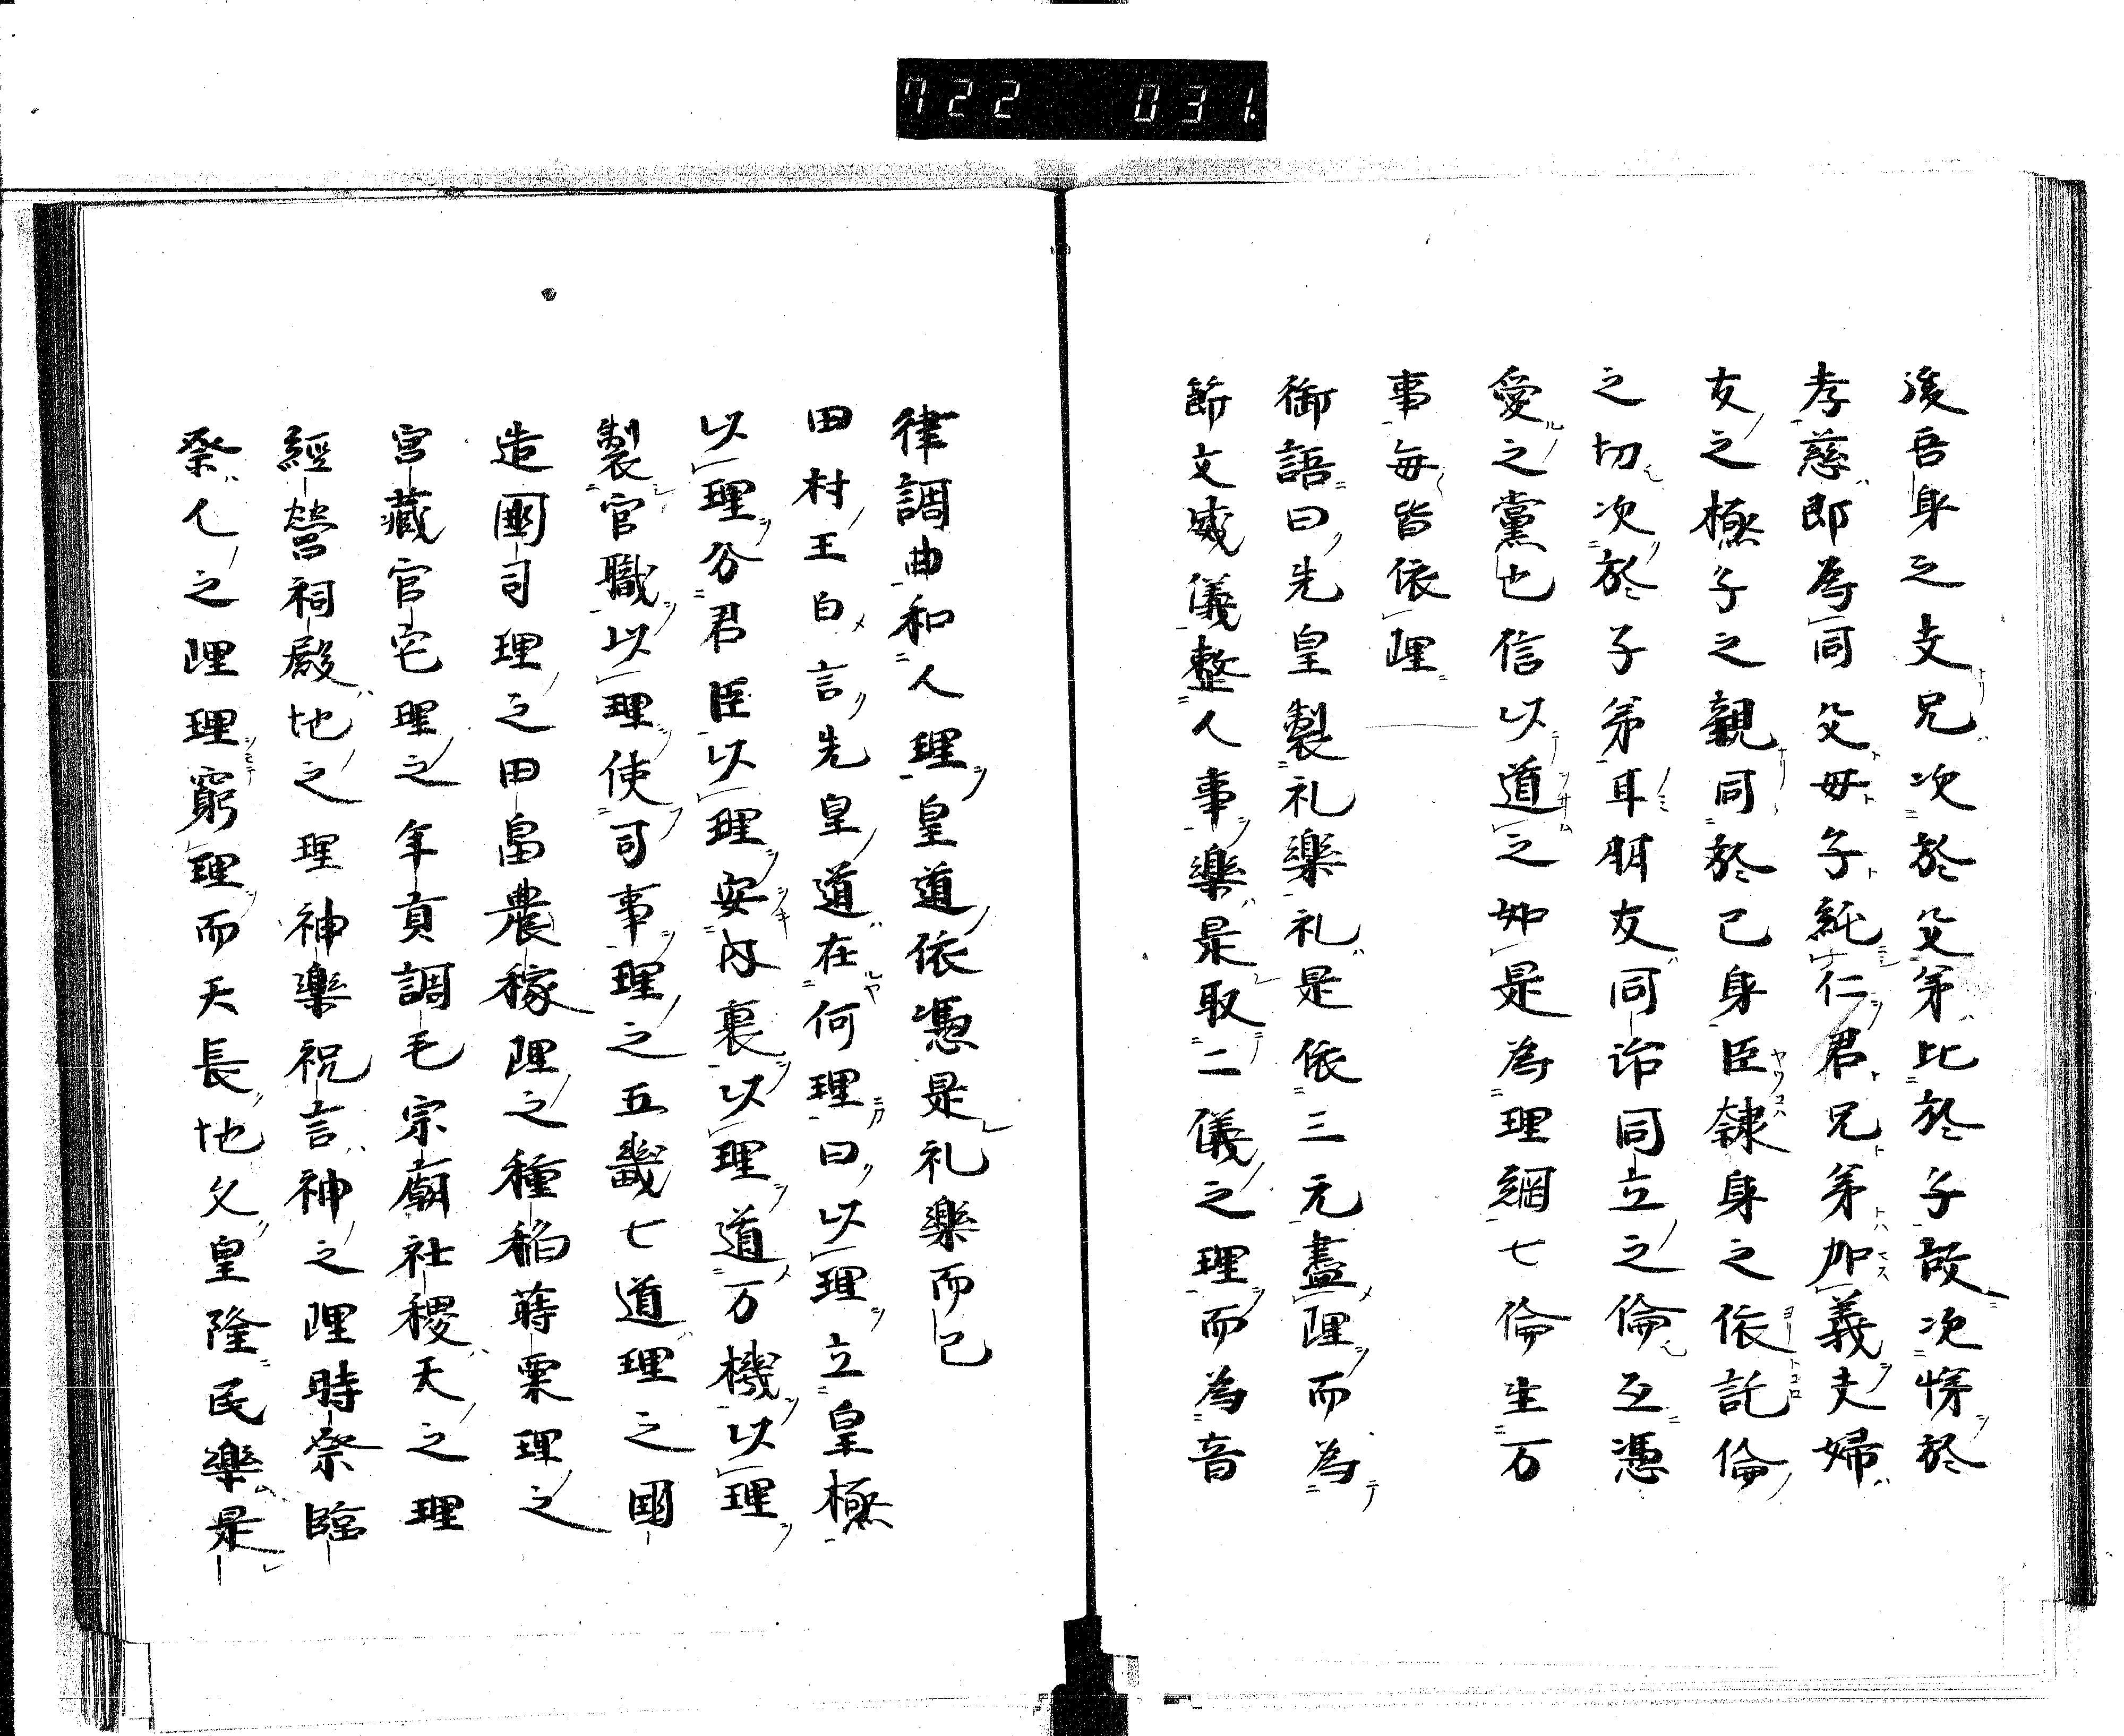 722 031
後吾身之支兄次於父弟比於子故次悌於
孝慈即為同父母子純仁君兄弟加義夫婦
友之極子之親同於己身臣隷身之依託倫
之切次於子弟耳朋友同治同立之倫互憑
愛之黨也信以道之如是為理綱七倫生万
事毎皆依理
御語曰先皇製礼樂礼是依三元盡理而為
節文威儀整人事樂是取二儀之理而為音
律調曲和人理皇道依憑是礼樂而已
田村王白言先皇道在何理曰以理立皇極
以理分君臣以理安内裏以理道万機以理
製官職以理使司事理之五畿七道理之国
造國司理之田畠農稼理之種稲蒔粟理之
宮藏官宅理之年貢調毛宗廟社稷天之理
經營祠殿地之理神樂祝言神之理時祭臨
祭人之理理窮理而天長地久皇隆民樂是